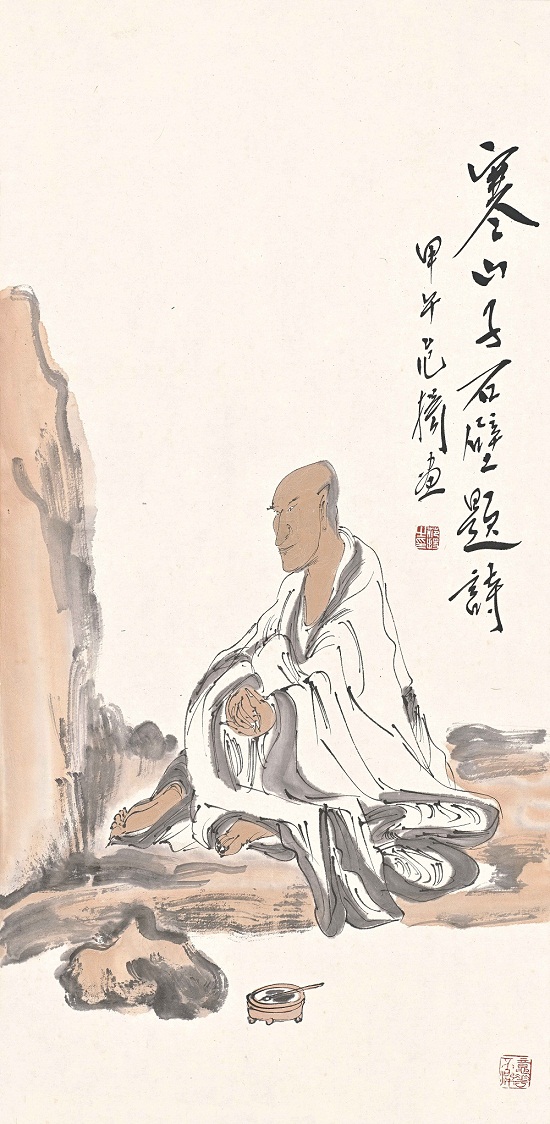 寒山子石壁題詩
甲午范擴畫